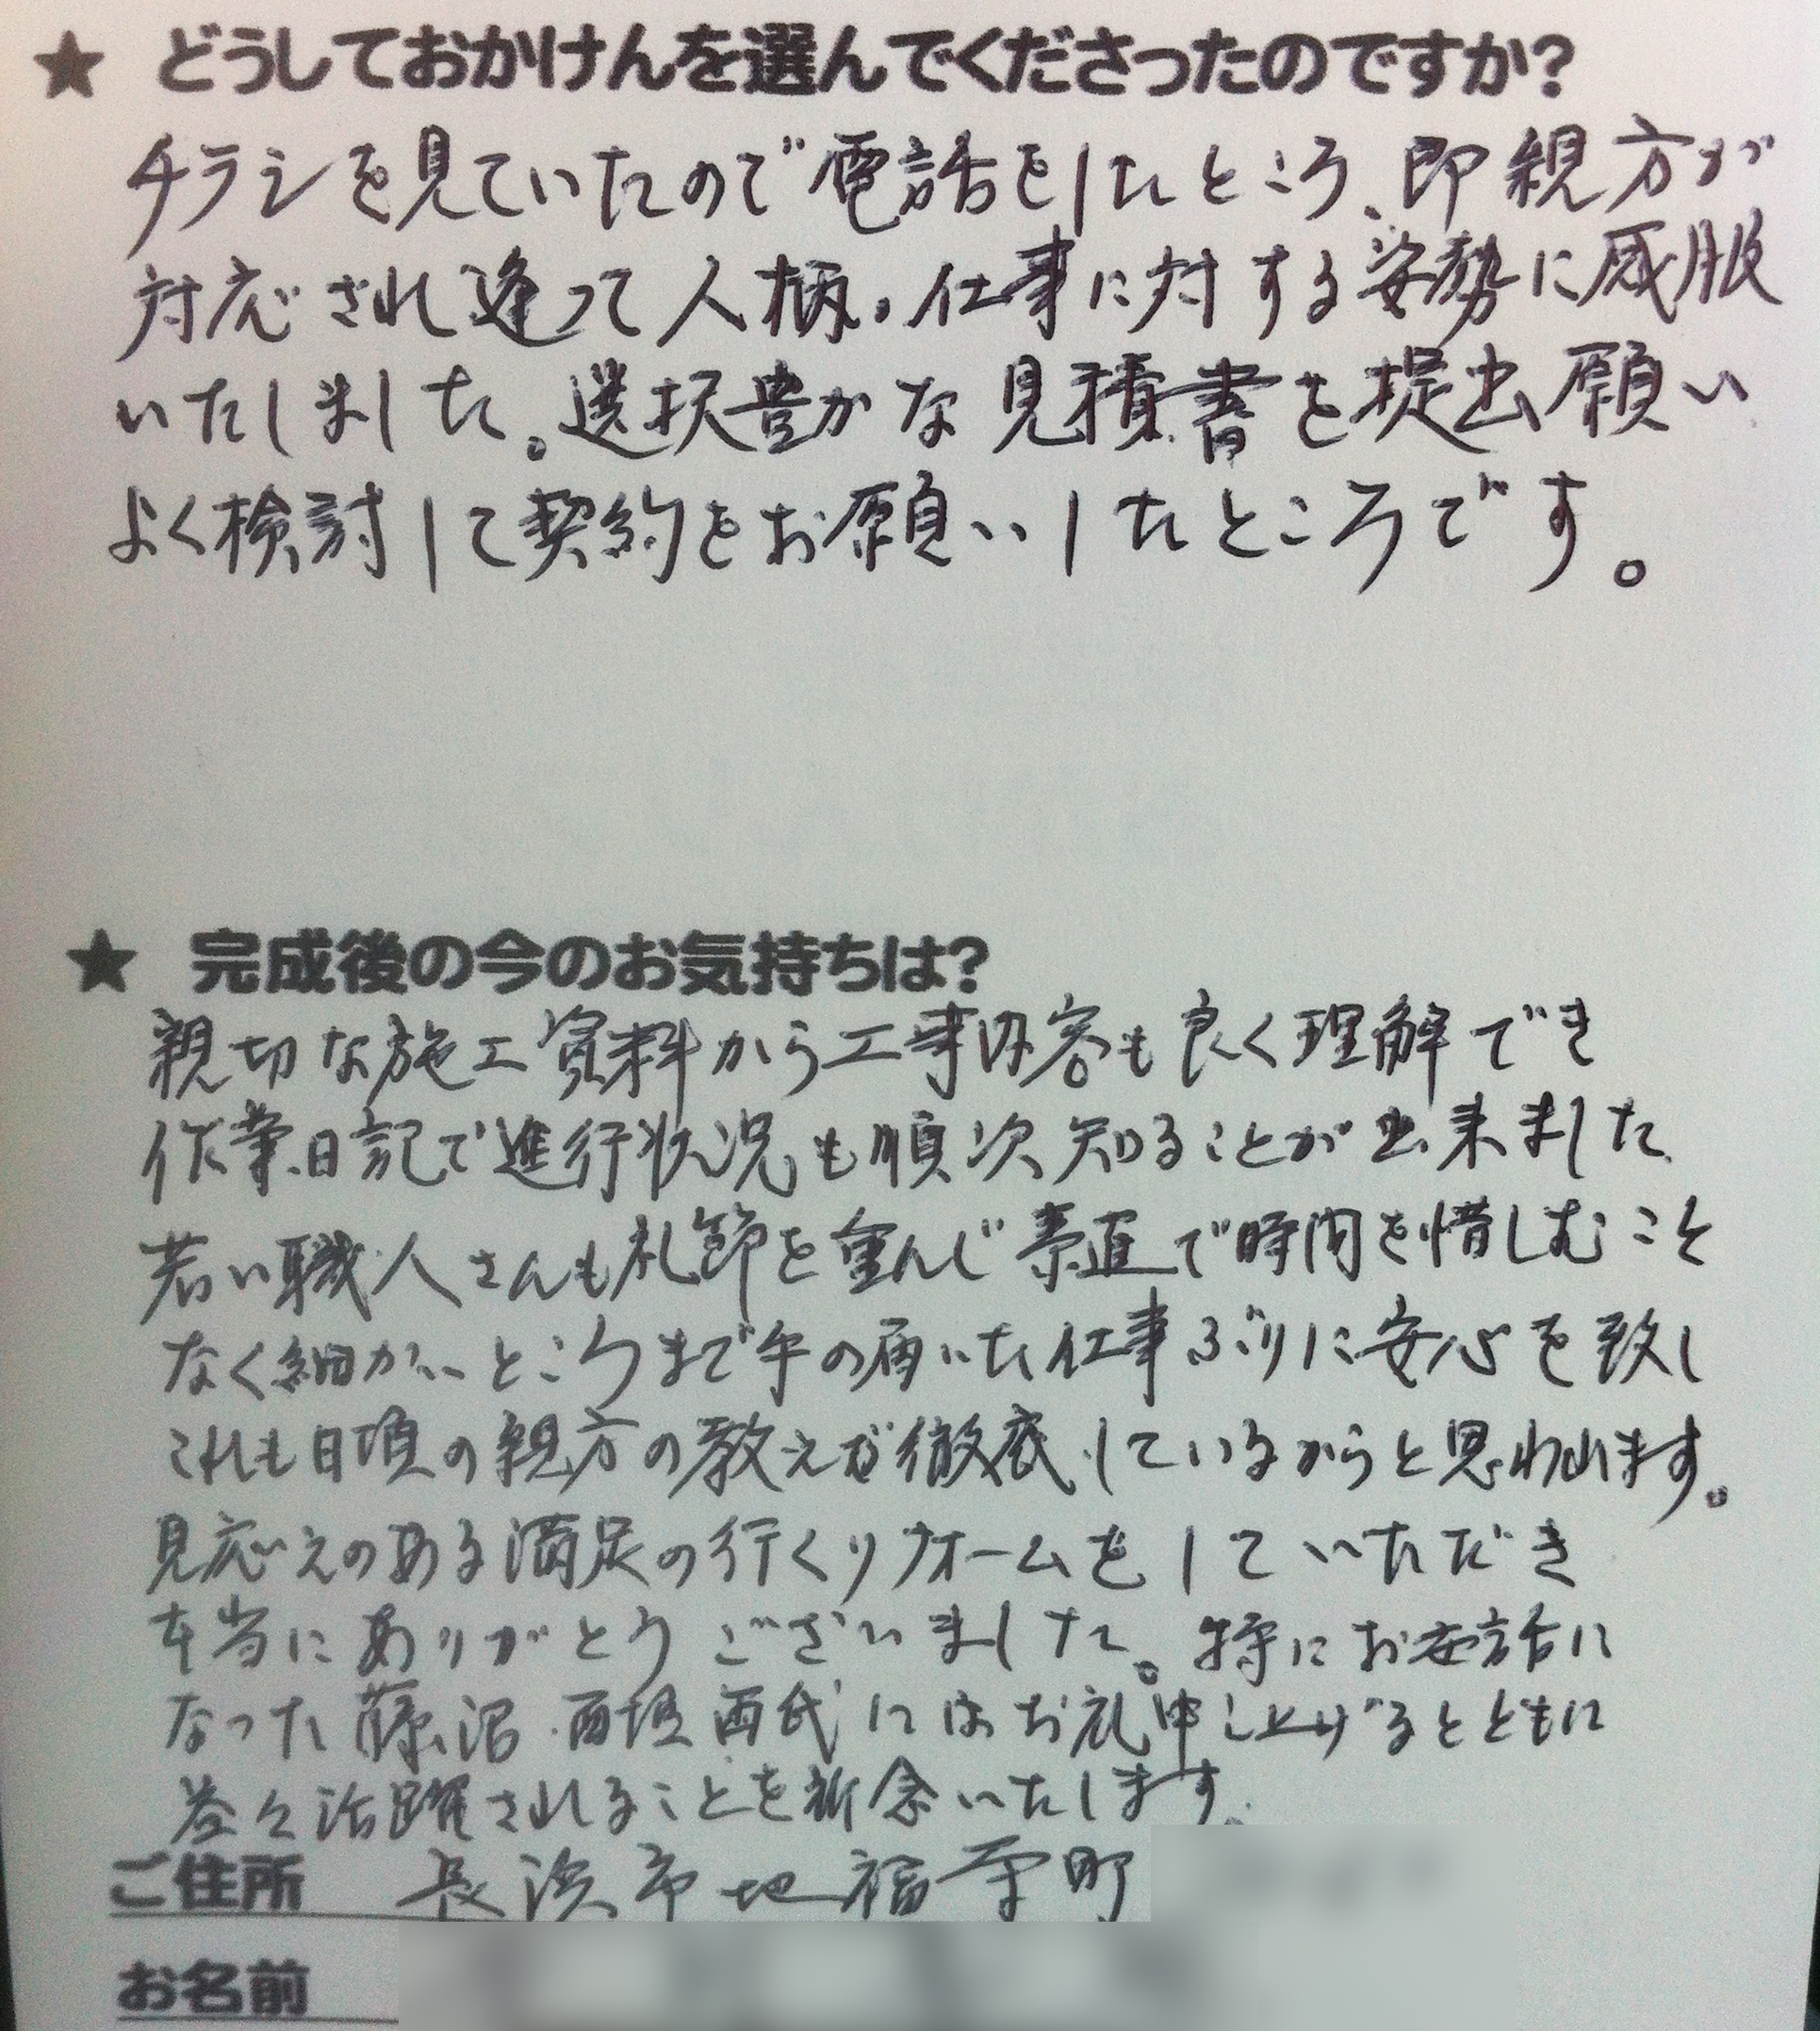 ★ どうしておかけんを選んでくださったのですか?
チラシを見ていたので電話をしたところ、即親方が
対応され逢って人柄、仕事に対する姿勢に感服
いたしました。選択豊かな見積書を提出願い
よく検討して契約をお願いしたところです。
★ 完成後の今のお気持ちは?
親切な施工資料から工事内容も良く理解でき
作業日記で進行状況も順次知ることが出来ました。
若い職人さんも礼節を重んじ素直で時間を惜しむこと
なく細かいところまで手の届いた仕事ぶりに安心を致し
これも日頃の親方の教えが徹底しているからと思われます。
見応えのある満足の行くリフォームをして いただき
本当にありがとうございました。特にお世話に
なった藤沼 西堀両氏にはお礼申し上げるとともに
益々活躍されることを祈念いたします。
ご住所 長浜市地福寺町
お名前